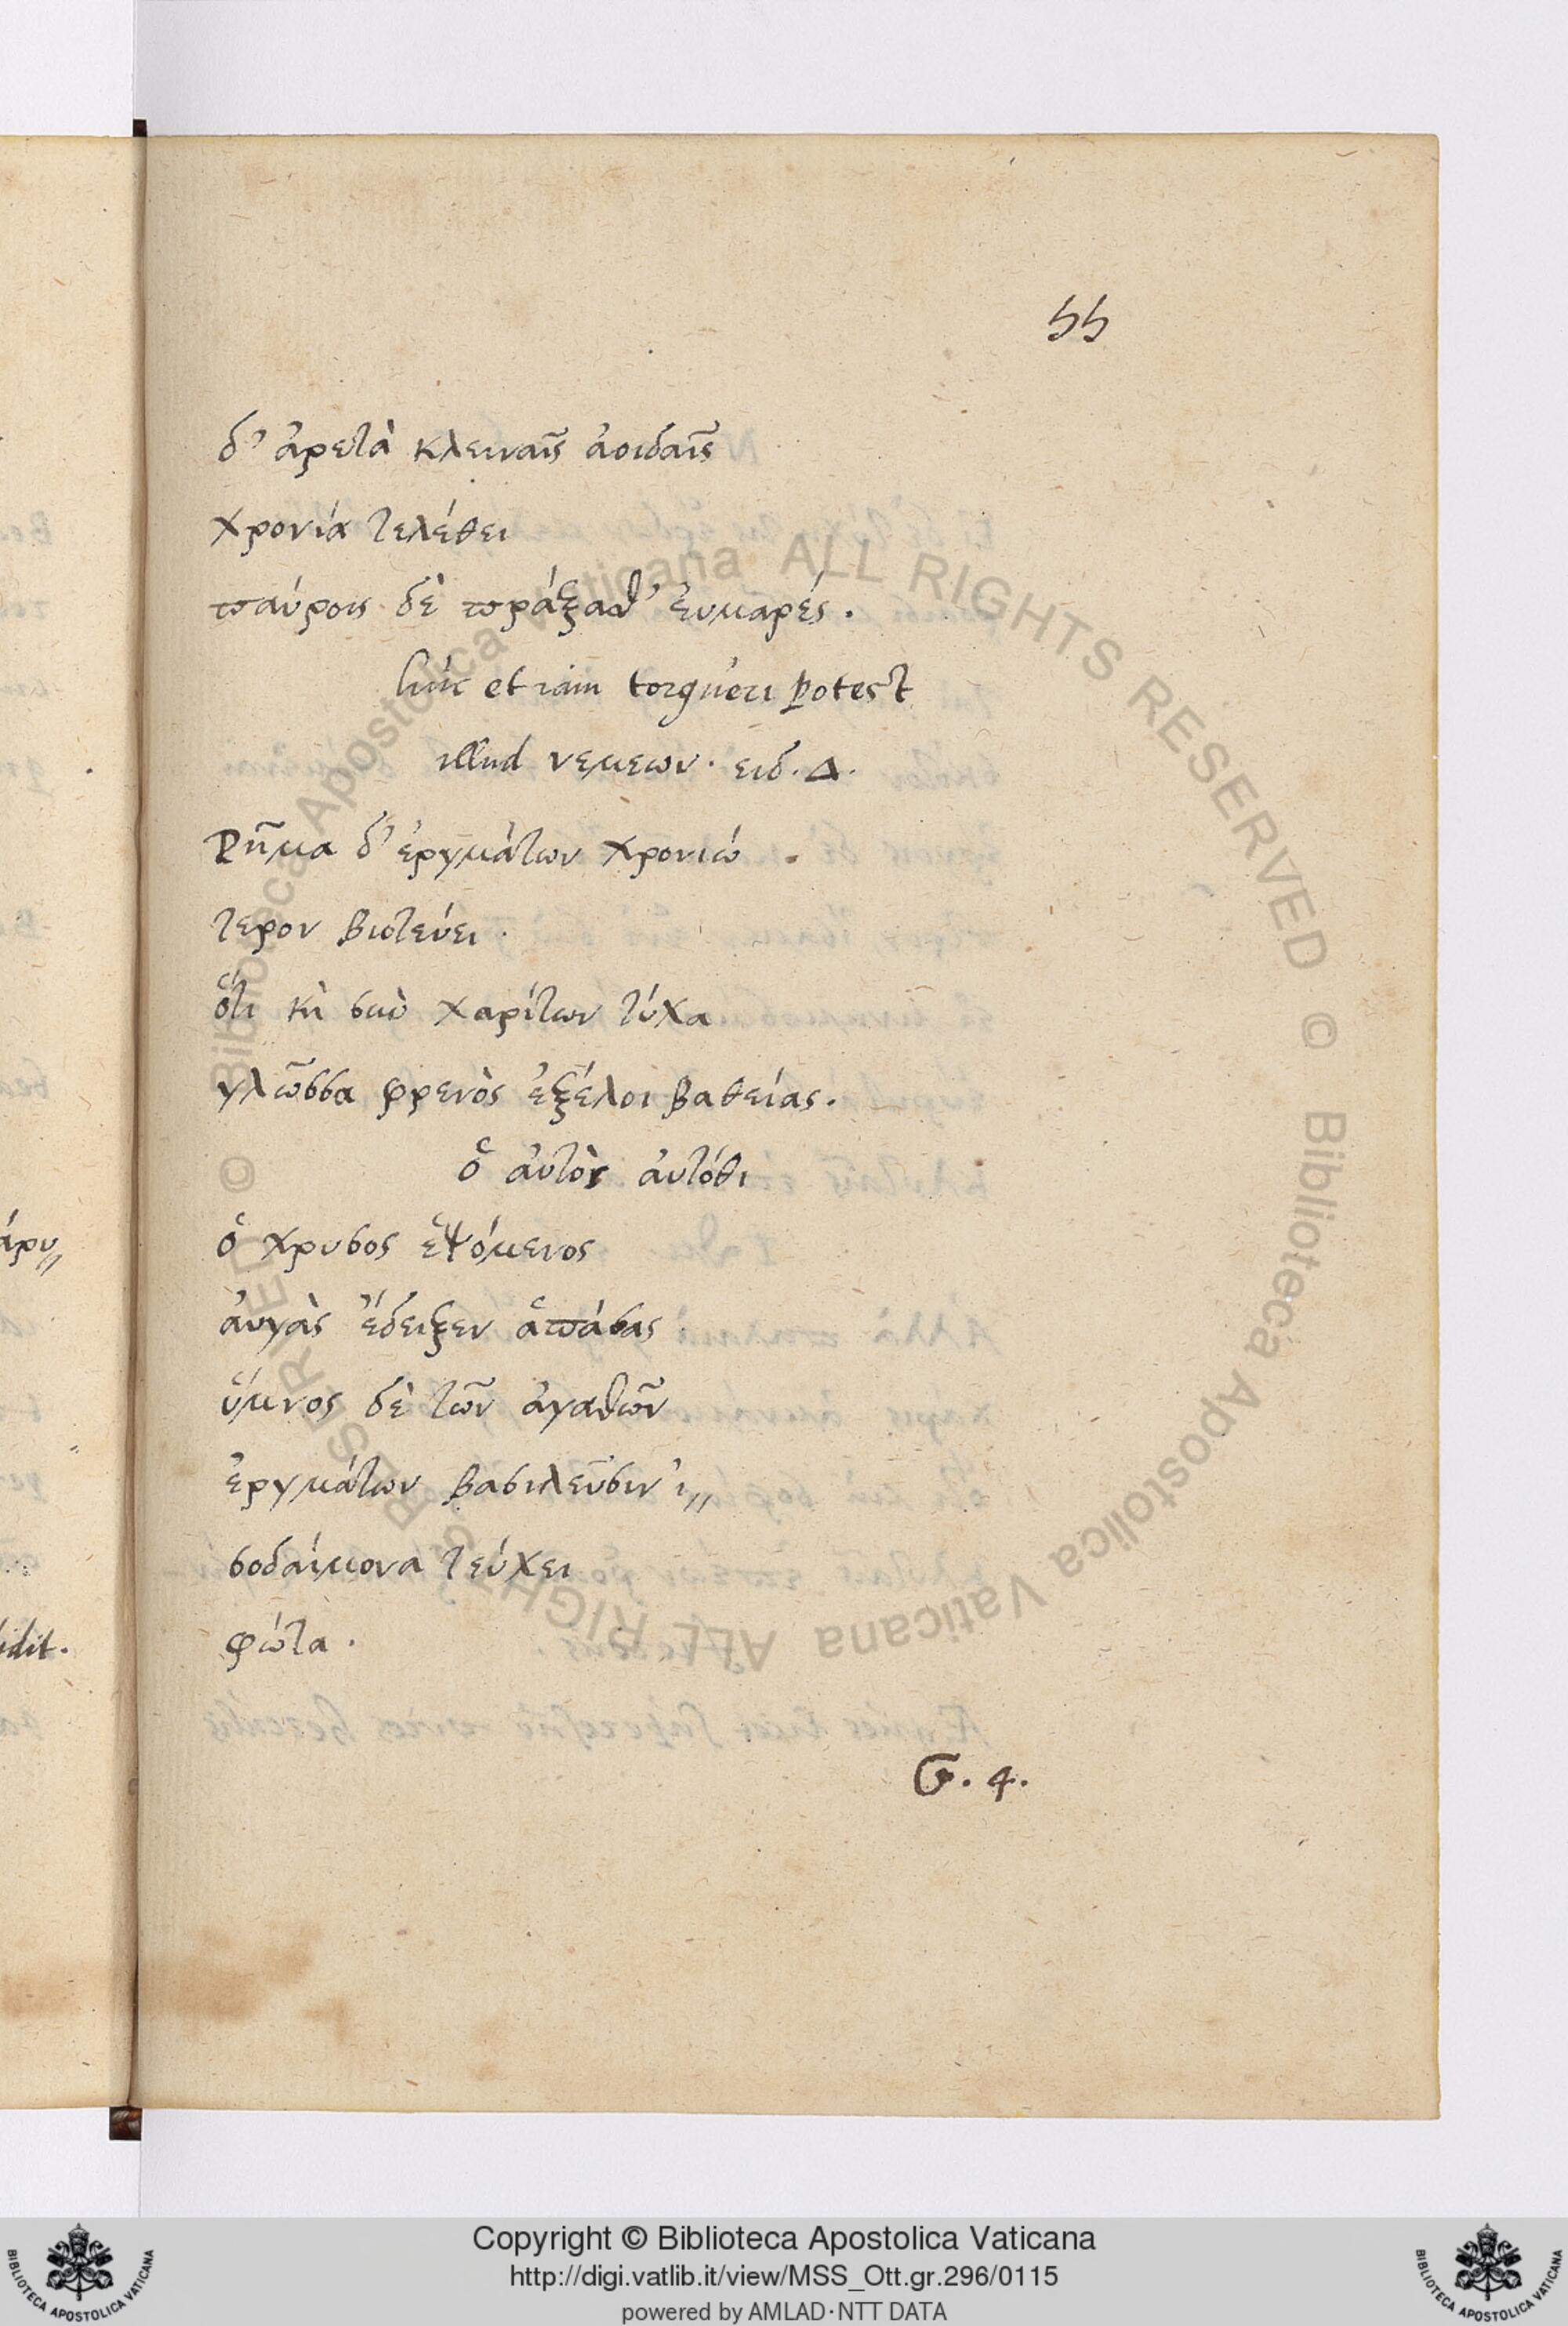 55
δ' ἀρετὰ κλειναῖς ἀοιδαῖς
χρονία τελέθει
παύροις δὲ πράξαθ' ἐυμαρές.
huc etiam torqueri potest
illud νεμεων. ειδ. Δ.
Ρῆμα δ' ἐργμάτων χρονιώ
τερον βιοτεύει.
ὅτι κὶ σιὺ χαρίτων τύχα
γλῶσσα φρενὸς ἐξέλοι βαθείας.
ὁ ἀυτὸς ἀυτόθι
ὁ χρυσος ἑψόμενος
ἀυγὰς ἔδειξεν ἁπάσας
ὕμνος δὲ τῶν ἀγαθῶν
ἐργμάτων βασιλεῦσιν ἰ,,
σοδαίμονα τεύχει
φώτα.
G. 4.
άρυ,,
idit.
Copyright © Biblioteca Apostolica Vaticana
http://digi.vatlib.it/view/MSS_Ott.gr.296/0115
powered by AMLAD·NTT DATA
BIBLIOTECA APOSTOLICA VATICANA
BIBLIOTECA APOSTOLICA VATICANA
© Biblioteca Apostolica Vaticana ALL RIGHTS RESERVED © Biblioteca Apostolica Vaticana ALL RIGHTS RESERVED